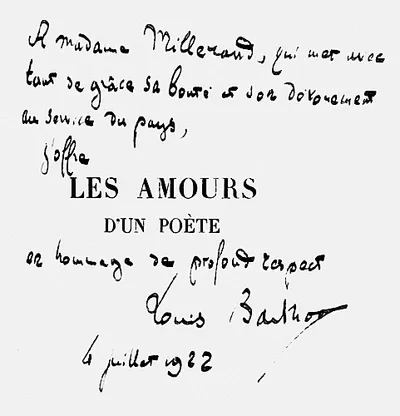 A madame Millerand, qui met avec
tant de grâce sa bonté et son dévouement
au service du pays,
j'offre
LES AMOURS
D'UN POÈTE
en hommage de profond respect
Louis Barthou
4 juillet 1922